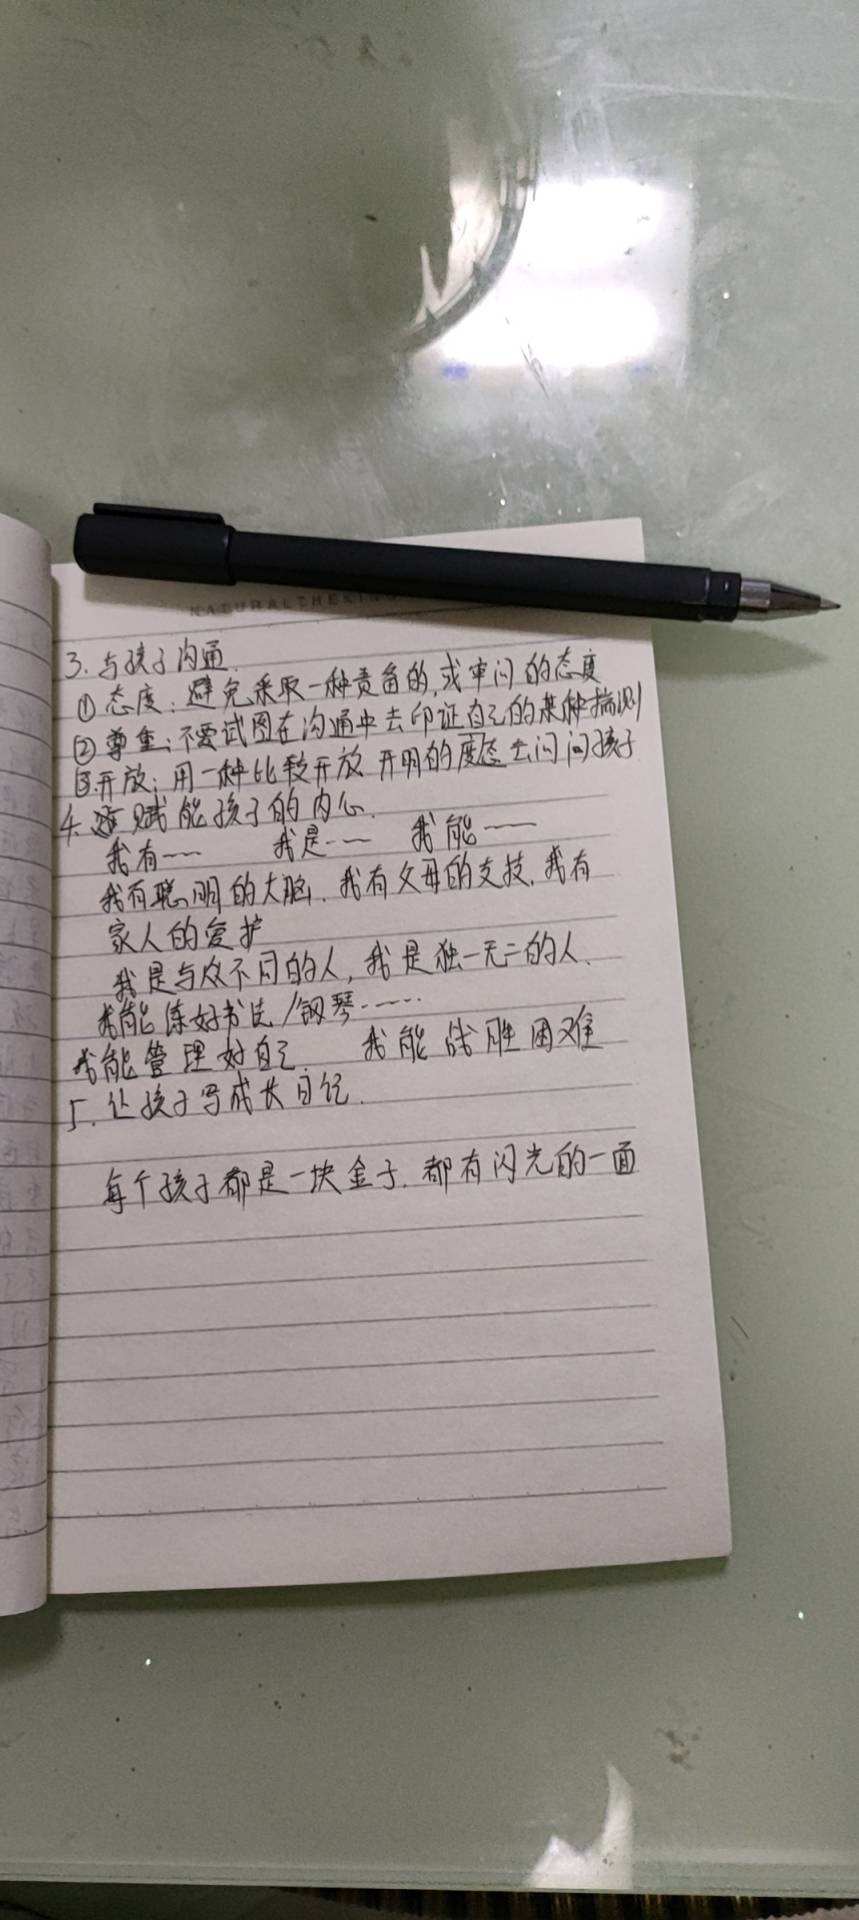 NATURALTHEKIN
3. 与孩子沟通.
① 态度: 避免采取一种责备的,或审问的态度
② 尊重: 不要试图在沟通中去印证自己的某种揣测
③ 开放: 用一种比较开放 开明的度态去问问孩子
4. 赋能孩子的内心.
我有…… 我是…… 我能……
我有聪明的大脑. 我有父母的支技. 我有
家人的爱护
我是与众不同的人, 我是独一无二的人、
我能练好书法/钢琴……
我能管理好自己. 我能战胜困难
5. 让孩子写成长日记.
每个孩子都是一块金子. 都有闪光的一面